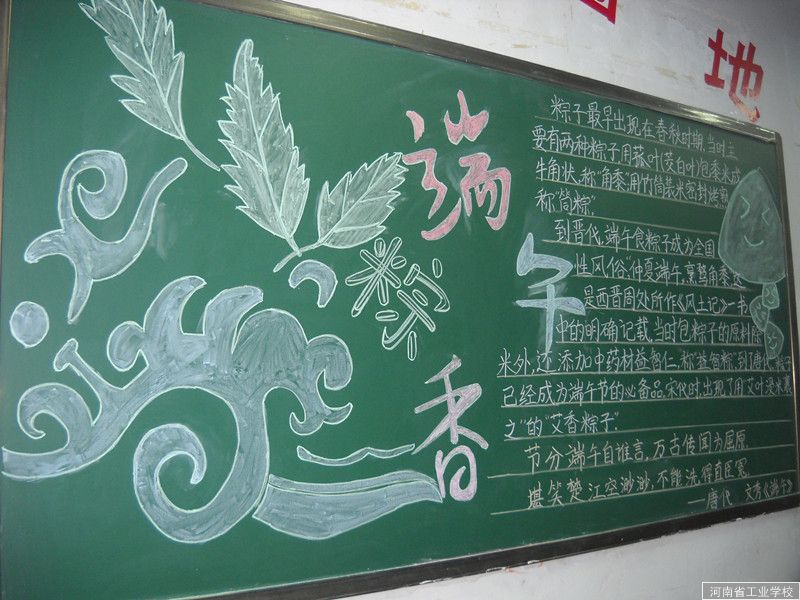 地
端
午
粽
子
香
粽子最早出现在春秋时期,当时主
要有两种粽子用菰叶(茭白叶)包黍米成
牛角状,称"角黍"用竹筒装米密封烤熟
称"筒粽".
到晋代,端午食粽子成为全国
性风俗."仲夏端午,烹鹜角黍"这
是西晋周处所作《风土记》一书
中的明确记载,当时包粽子的原料除
米外,还添加中药材益智仁,称"益智粽",到了唐代,粽子
已经成为端午节的必备品,宋代时,出现了用艾叶染米裹
之"的"艾香粽子".
节分端午自谁言,万古传闻为屈原
堪笑楚江空渺渺,不能洗得直臣冤
——唐代 文秀《端午》
河南省工业学校